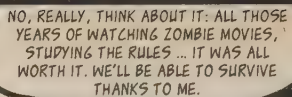 NO, REALLY, THINK ABOUT IT: ALL THOSE
YEARS OF WATCHING ZOMBIE MOVIES,
STUDYING THE RULES ... IT WAS ALL
WORTH IT. WE'LL BE ABLE TO SURVIVE
THANKS TO ME.